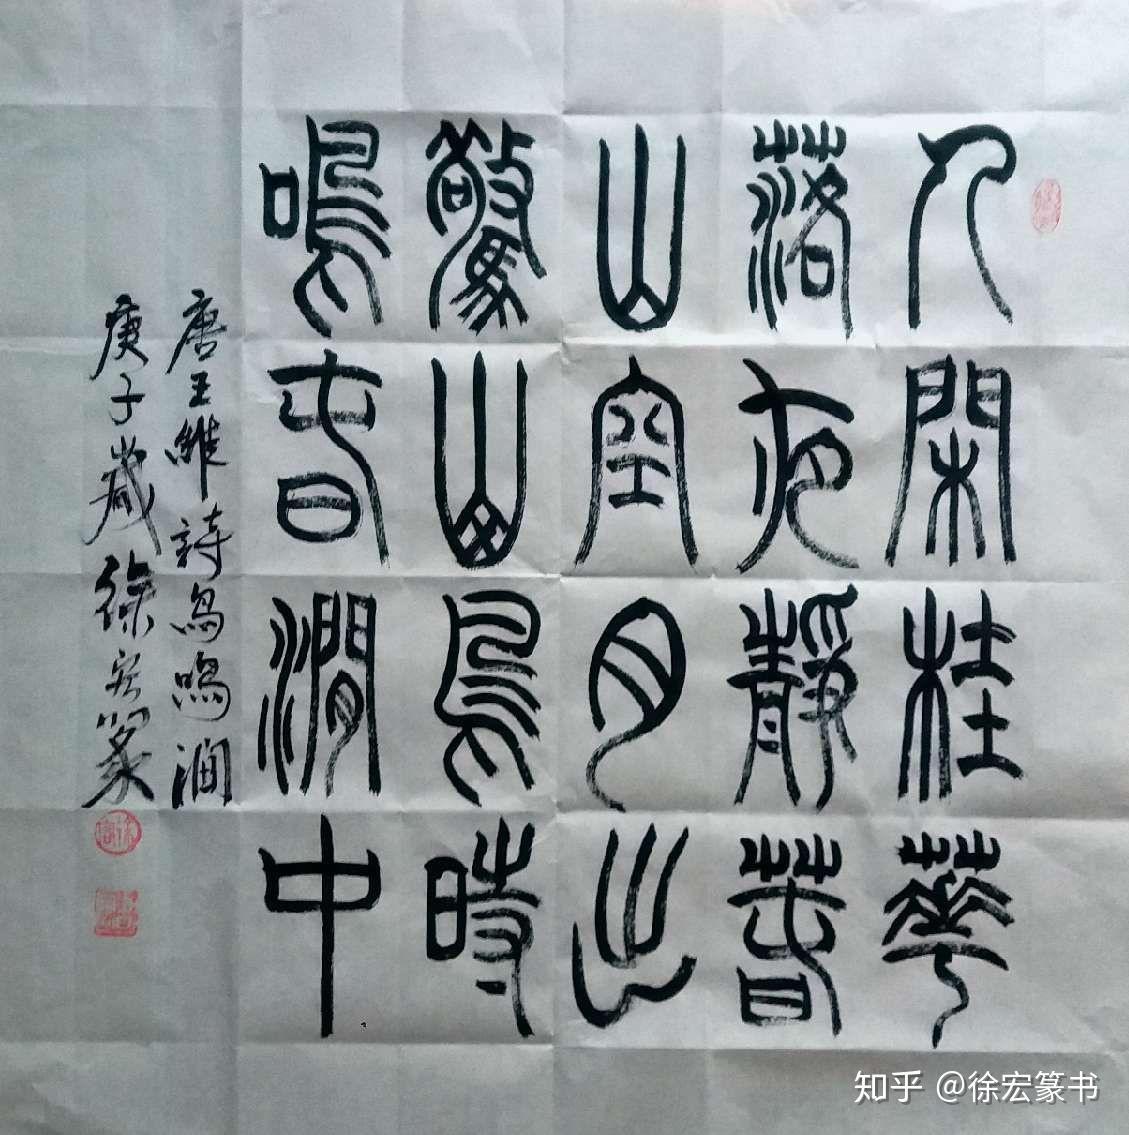 人閑桂華
落夜靜春
山空月出
驚山鳥時
鳴春澗中
唐王維詩鳥鳴澗
庚子歲徐宏篆
知乎 @徐宏篆书